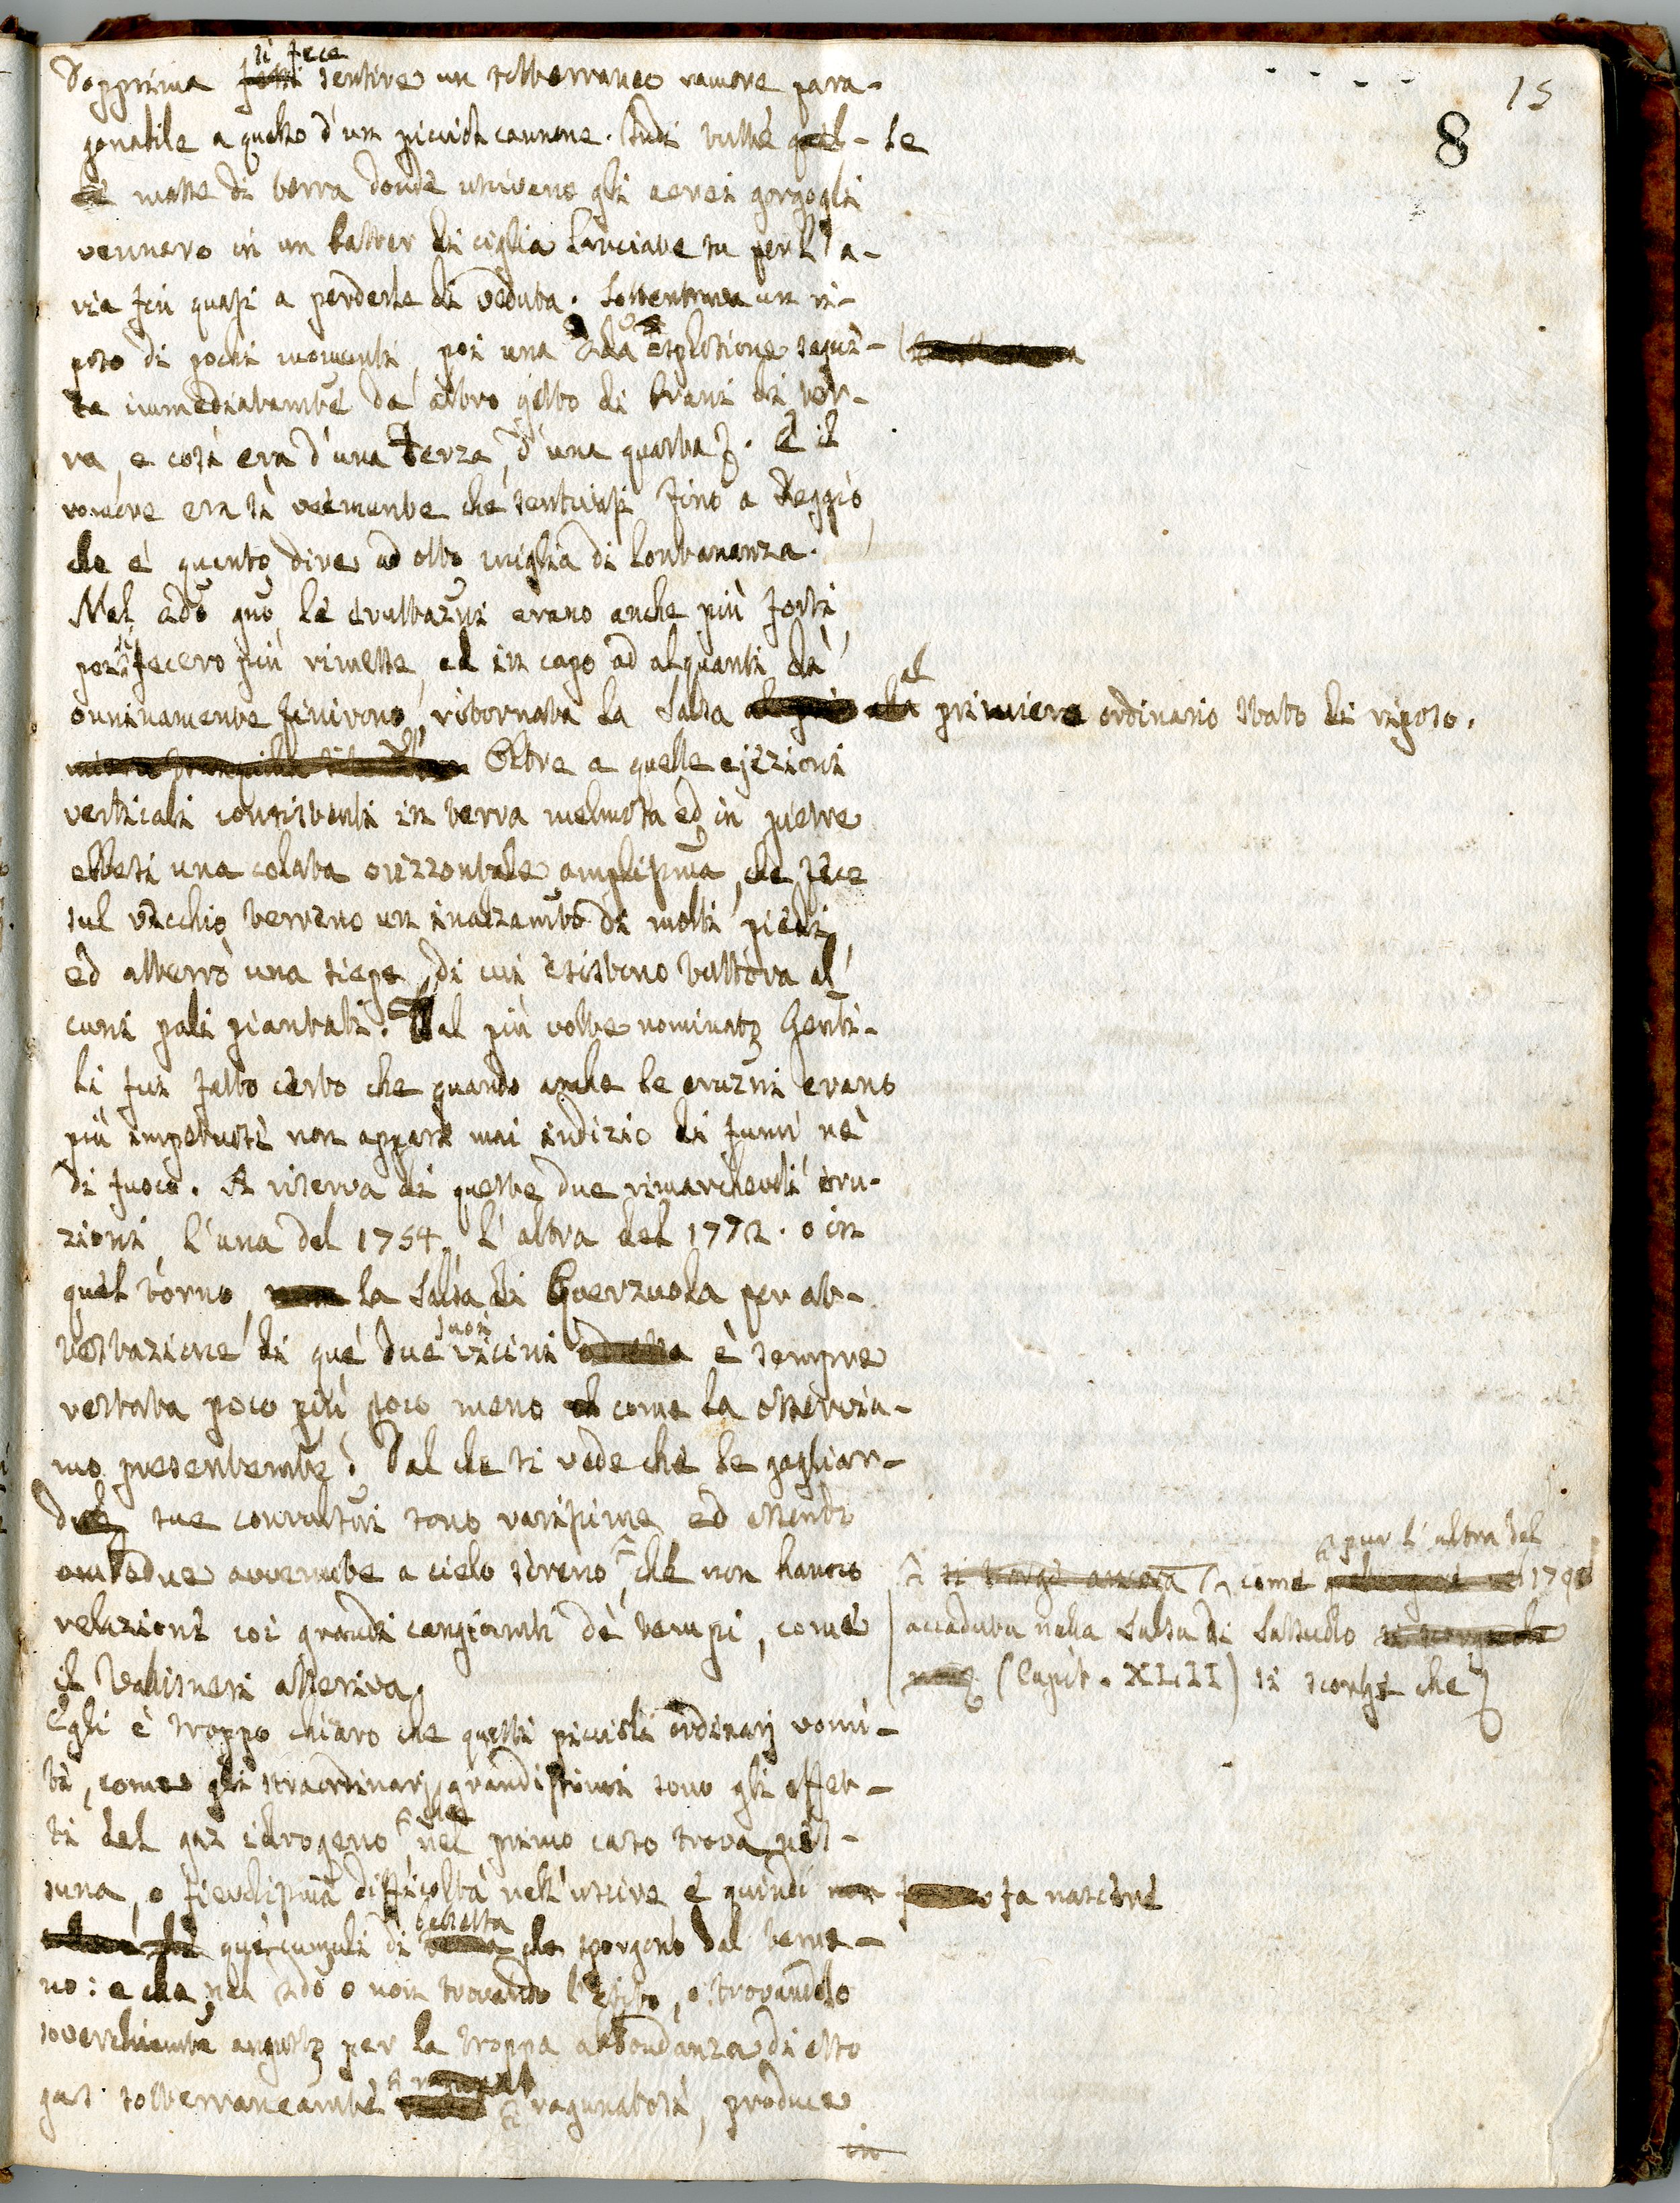 15
8
Dapprima si fece sentire un sotterraneo rumore para-
gonabile a quello d'un picciol cannone. Indi tutte quel- le
masse di terra donde uscivano gli aerei gorgogli
vennero in un batter di ciglia lanciate su per l'a-
ria fin quasi a perderle di veduta. Sottentrava un ri-
poso di pochi momenti, poi una 2da esplosione segui-
ta immediatamte da altro getto di brani di ter-
ra, e così era d'una terza, d'una quarta. E il
romore era sì veemente che sentivasi fino a Reggio,
che è quanto dire ad otto miglia di lontananza.
Nel 2do gno le eruttazni erano anche più forti,
poi si fecero più rimesse, ed in capo ad alquanti dì
onninamente finirono, ritornata la Salsa al primiero ordinario stato di riposo.
Oltre a quelle ejezioni
verticali consistenti in terra melmosa ed in pietre
ebbesi una colata orizzontale amplissma, che fece
sul vecchio terreno un inalzamto di molti piedi,
ed atterrò una siepe, di cui esistono tuttora al
cuni pali piantati. Dal più volte nominato Genti-
li fui fatto certo che quando anche le eruzni erano
più impetuose non apparì mai indizio di fumi nè
di fuoco. A riserva di queste due rimarchevoli eru-
zioni, l'una del 1754, l'altra del 1772. o in
quel torno, la Salsa di Querzuola per at-
testazione di que' due suoi vicini è sempre
restata poco più poco meno come la osservia-
mo presentemte. Dal che si vede che le gagliar-
de sue convulsni sono rarissime, ed essendo
amedue avvenute a cielo sereno, che non hanno
si scorge ancora, come pur l'altra del 1790
accaduta nella Salsa di Sassuolo
(Capit. XLIII) si scorge che
relazione coi grandi cangiamti de' tempi, come
il Valisneri asseriva.
Egli è troppo chiaro che questi piccioli ordinarj vomi-
ti, come gli straordinarj grandissimi sono gli effet-
ti del gaz idrogeno, che nel primo caso trova nes-
suna, o fievolissma difficoltà nell'uscire e quindi fa nascere
que' cumuli di belletta che sporgono dal terre-
no: e che nel 2do o non trovando l'esito, o trovandolo
soverchiamte angusto per la troppa abbondanza di esso
gas sotterraneamte ragunatosi, produce
in